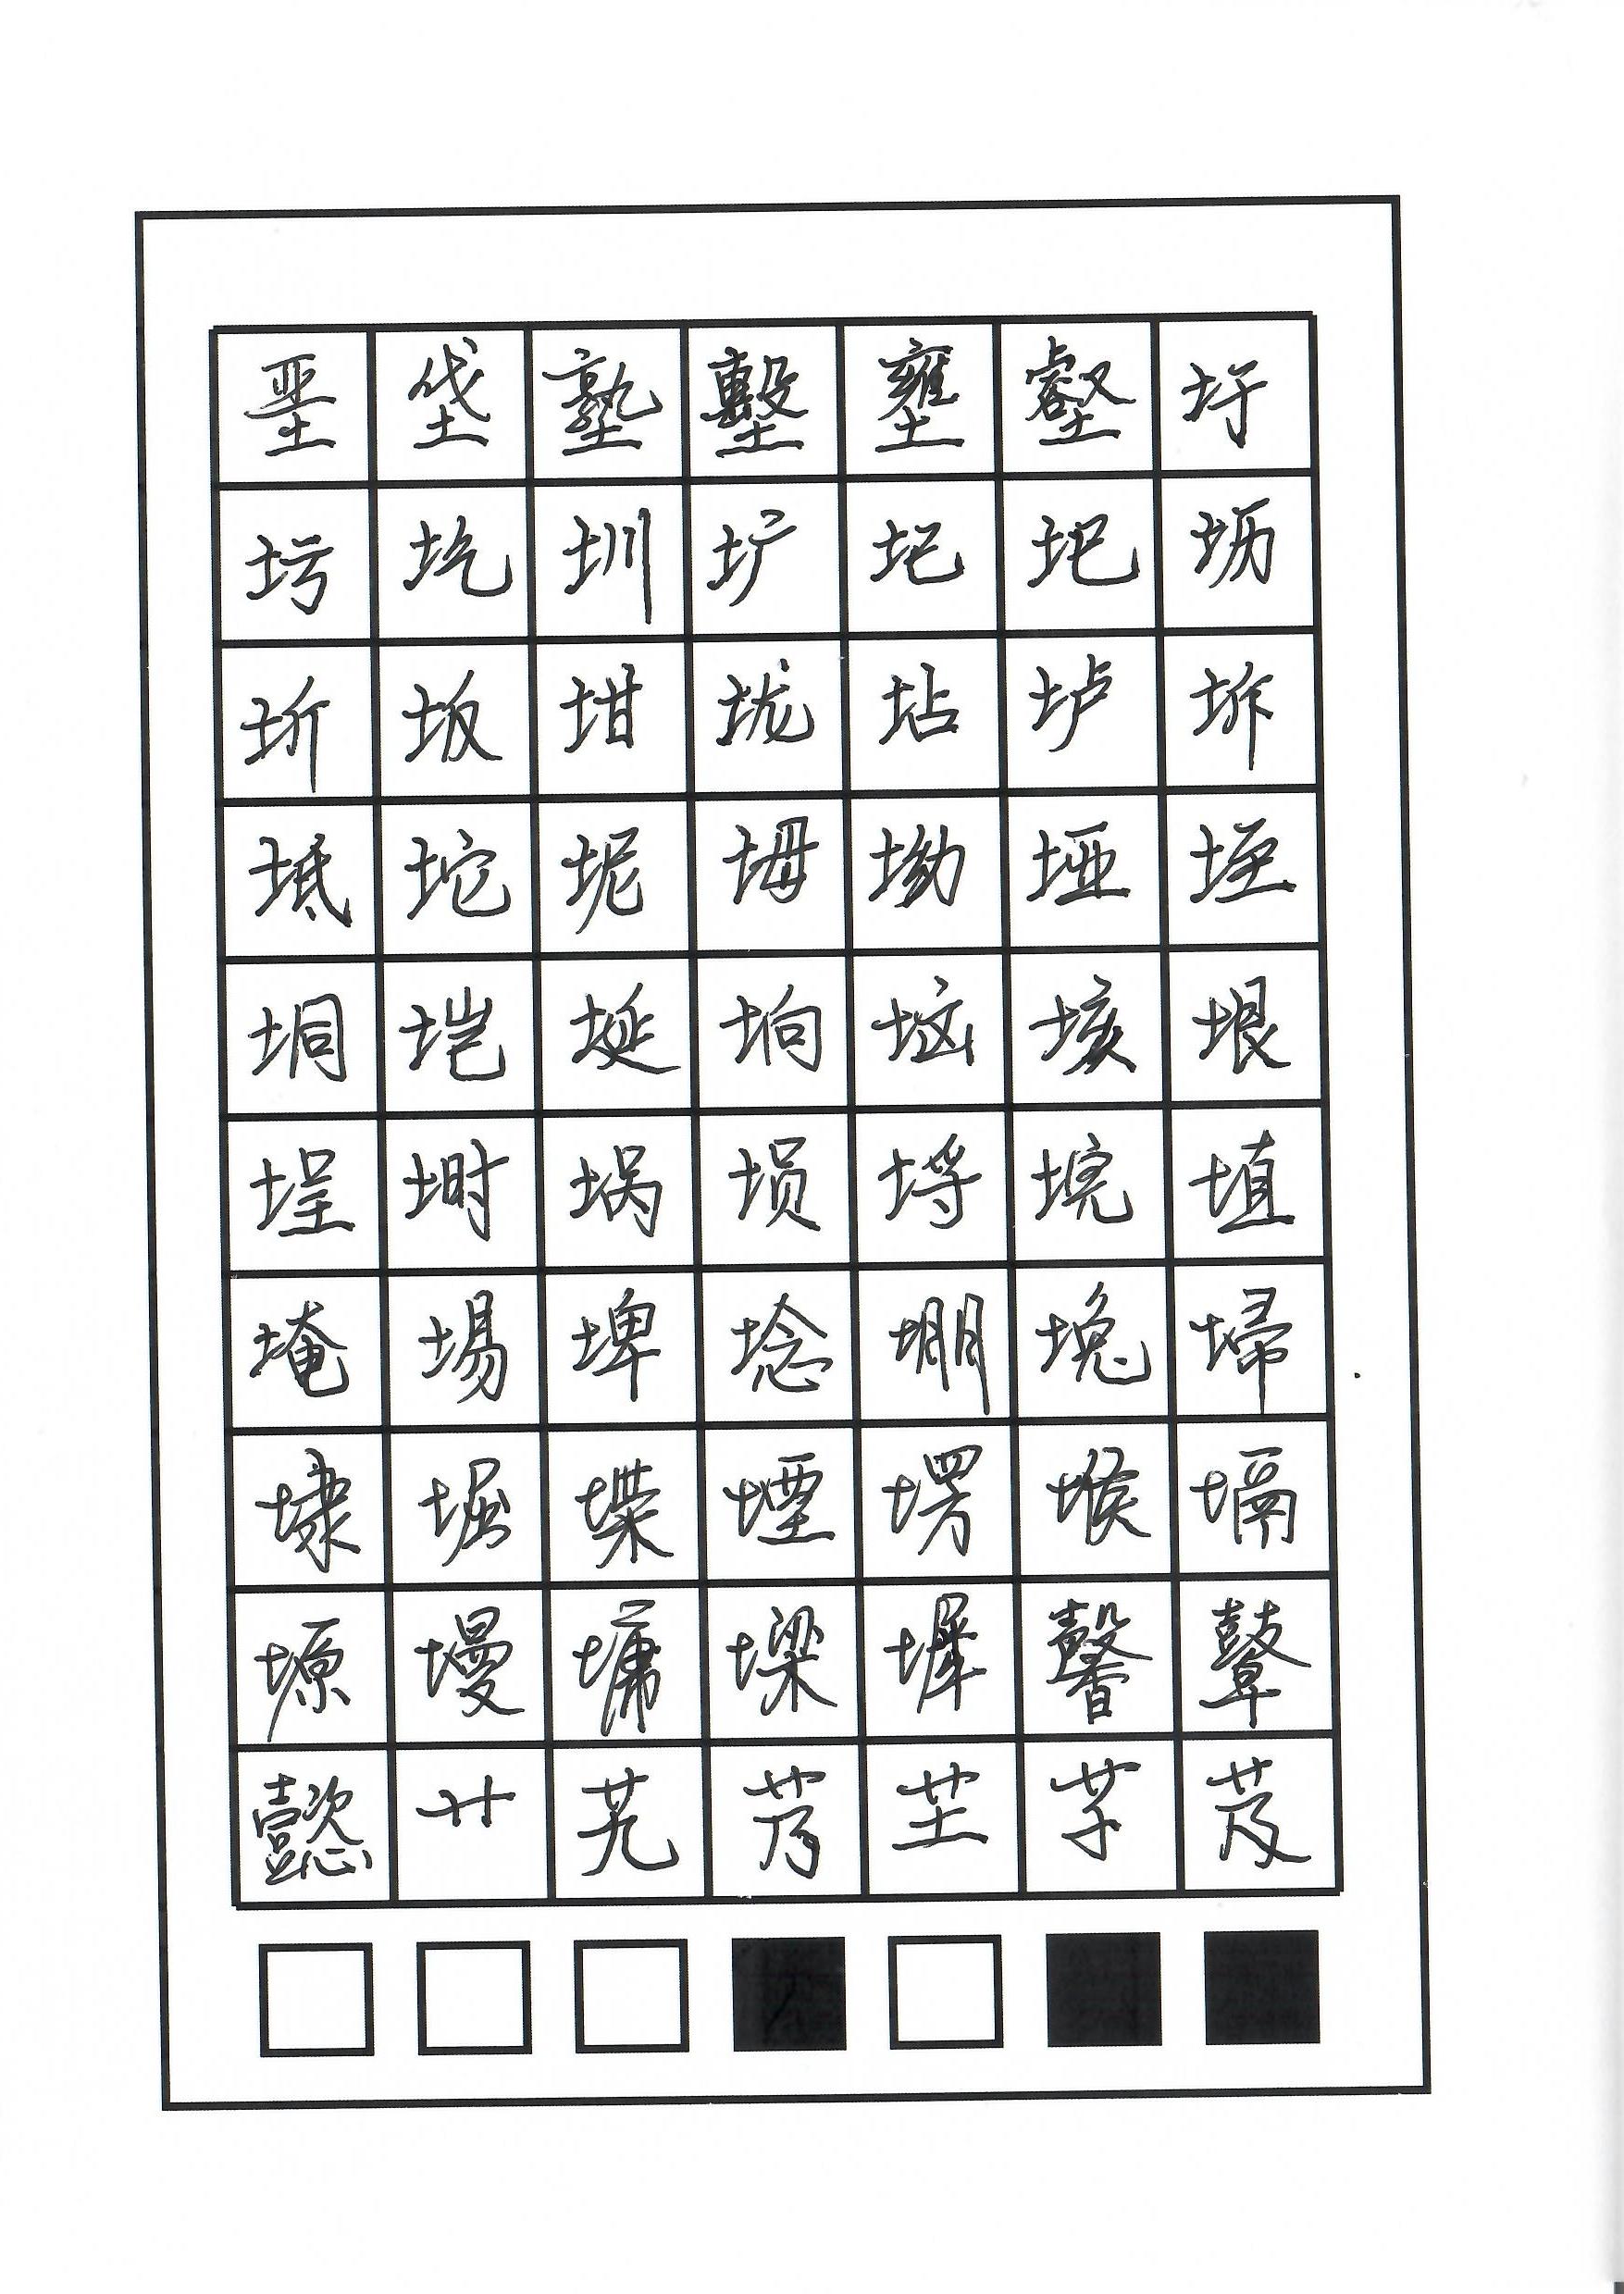 垩垡塾墼壅壑圩
圬圪圳圹圮圯坜
圻坂坩垅坫垆坼
坻坨坭坶坳垭垤
垌垲埏垧垴垓垠
埕埘埚埙埒垸埴
埯埸埤埝堋堍埽
埭堀堞堙塄堠塥
塬墁墉墚墀馨鼙
懿艹艽艿芏芊芨